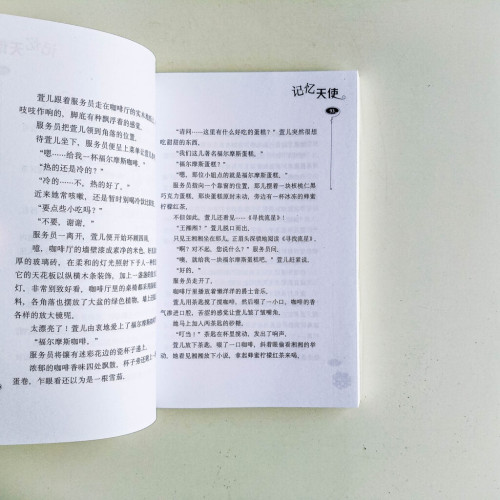 萱儿跟着服务员走在咖啡厅的实木
吱吱作响的，脚底有种飘浮着的感觉。
服务员把萱儿领到角落的位置。
待萱儿坐下，服务员便呈上菜单让萱儿
“嗯……给我一杯福尔摩斯咖啡。”
“热的还是冷的？”
“冷的……不，热的好了。”
近来她常咳嗽，还是暂时别喝冷饮比较
“要点些小吃吗？”
“不要，谢谢。”
服务员一离开，萱儿便开始环顾四周。
嗯，咖啡厅的墙壁漆成素净的米色，
厚的玻璃砖，在柔和的灯光照射下予人一种
的天花板以纵横木条装饰，加上一盏盏的
灯，非常别致好看，咖啡厅里的桌椅都
料，各角落也摆放了大盆的绿色植物，墙上
各样的放大镜呢。
太漂亮了！萱儿由衷地爱上了福尔摩斯
“福尔摩斯咖啡。”
服务员将镶有迷彩花边的瓷杯子递上。
浓郁的咖啡香味四处飘散，杯子旁还搁上一
蛋卷，乍眼看还以为是一根雪茄。
记忆天使
93
“请问……这里有什么好吃的蛋糕？”萱儿突然很想
吃甜甜的东西。
“我们这儿著名福尔摩斯蛋糕。”
“福尔摩斯蛋糕？”
“嗯，那位小姐点的就是福尔摩斯蛋糕。”
服务员指向一个靠窗的位置，那儿摆着一块核桃仁黑
巧克力蛋糕，那块蛋糕原封未动，旁边有一杯冰冻的蜂蜜
柠檬红茶。
不但如此，萱儿还看见……《寻找流星》！
“王湘湘？”萱儿脱口而出。
只见王湘湘坐在那儿，正眉头深锁地阅读《寻找流星》。
“啊？对不起，您说什么？”服务员问。
“噢，就给我一块福尔摩斯蛋糕吧。”萱儿赶紧说。
“好的。”
服务员走开了。
咖啡厅里播放着懒洋洋的爵士音乐。
萱儿用茶匙搅了搅咖啡，然后啜了一小口，咖啡的香
气渗进口腔，苦涩的感觉让萱儿皱了皱嘴角。
她马上加入两茶匙的砂糖。
“叮当！”茶匙在杯里搅动，发出了响声。
萱儿放下茶匙，啜了一口咖啡，斜着眼偷看湘湘的举
动，她看见湘湘放下小说，拿起蜂蜜柠檬红茶来喝。